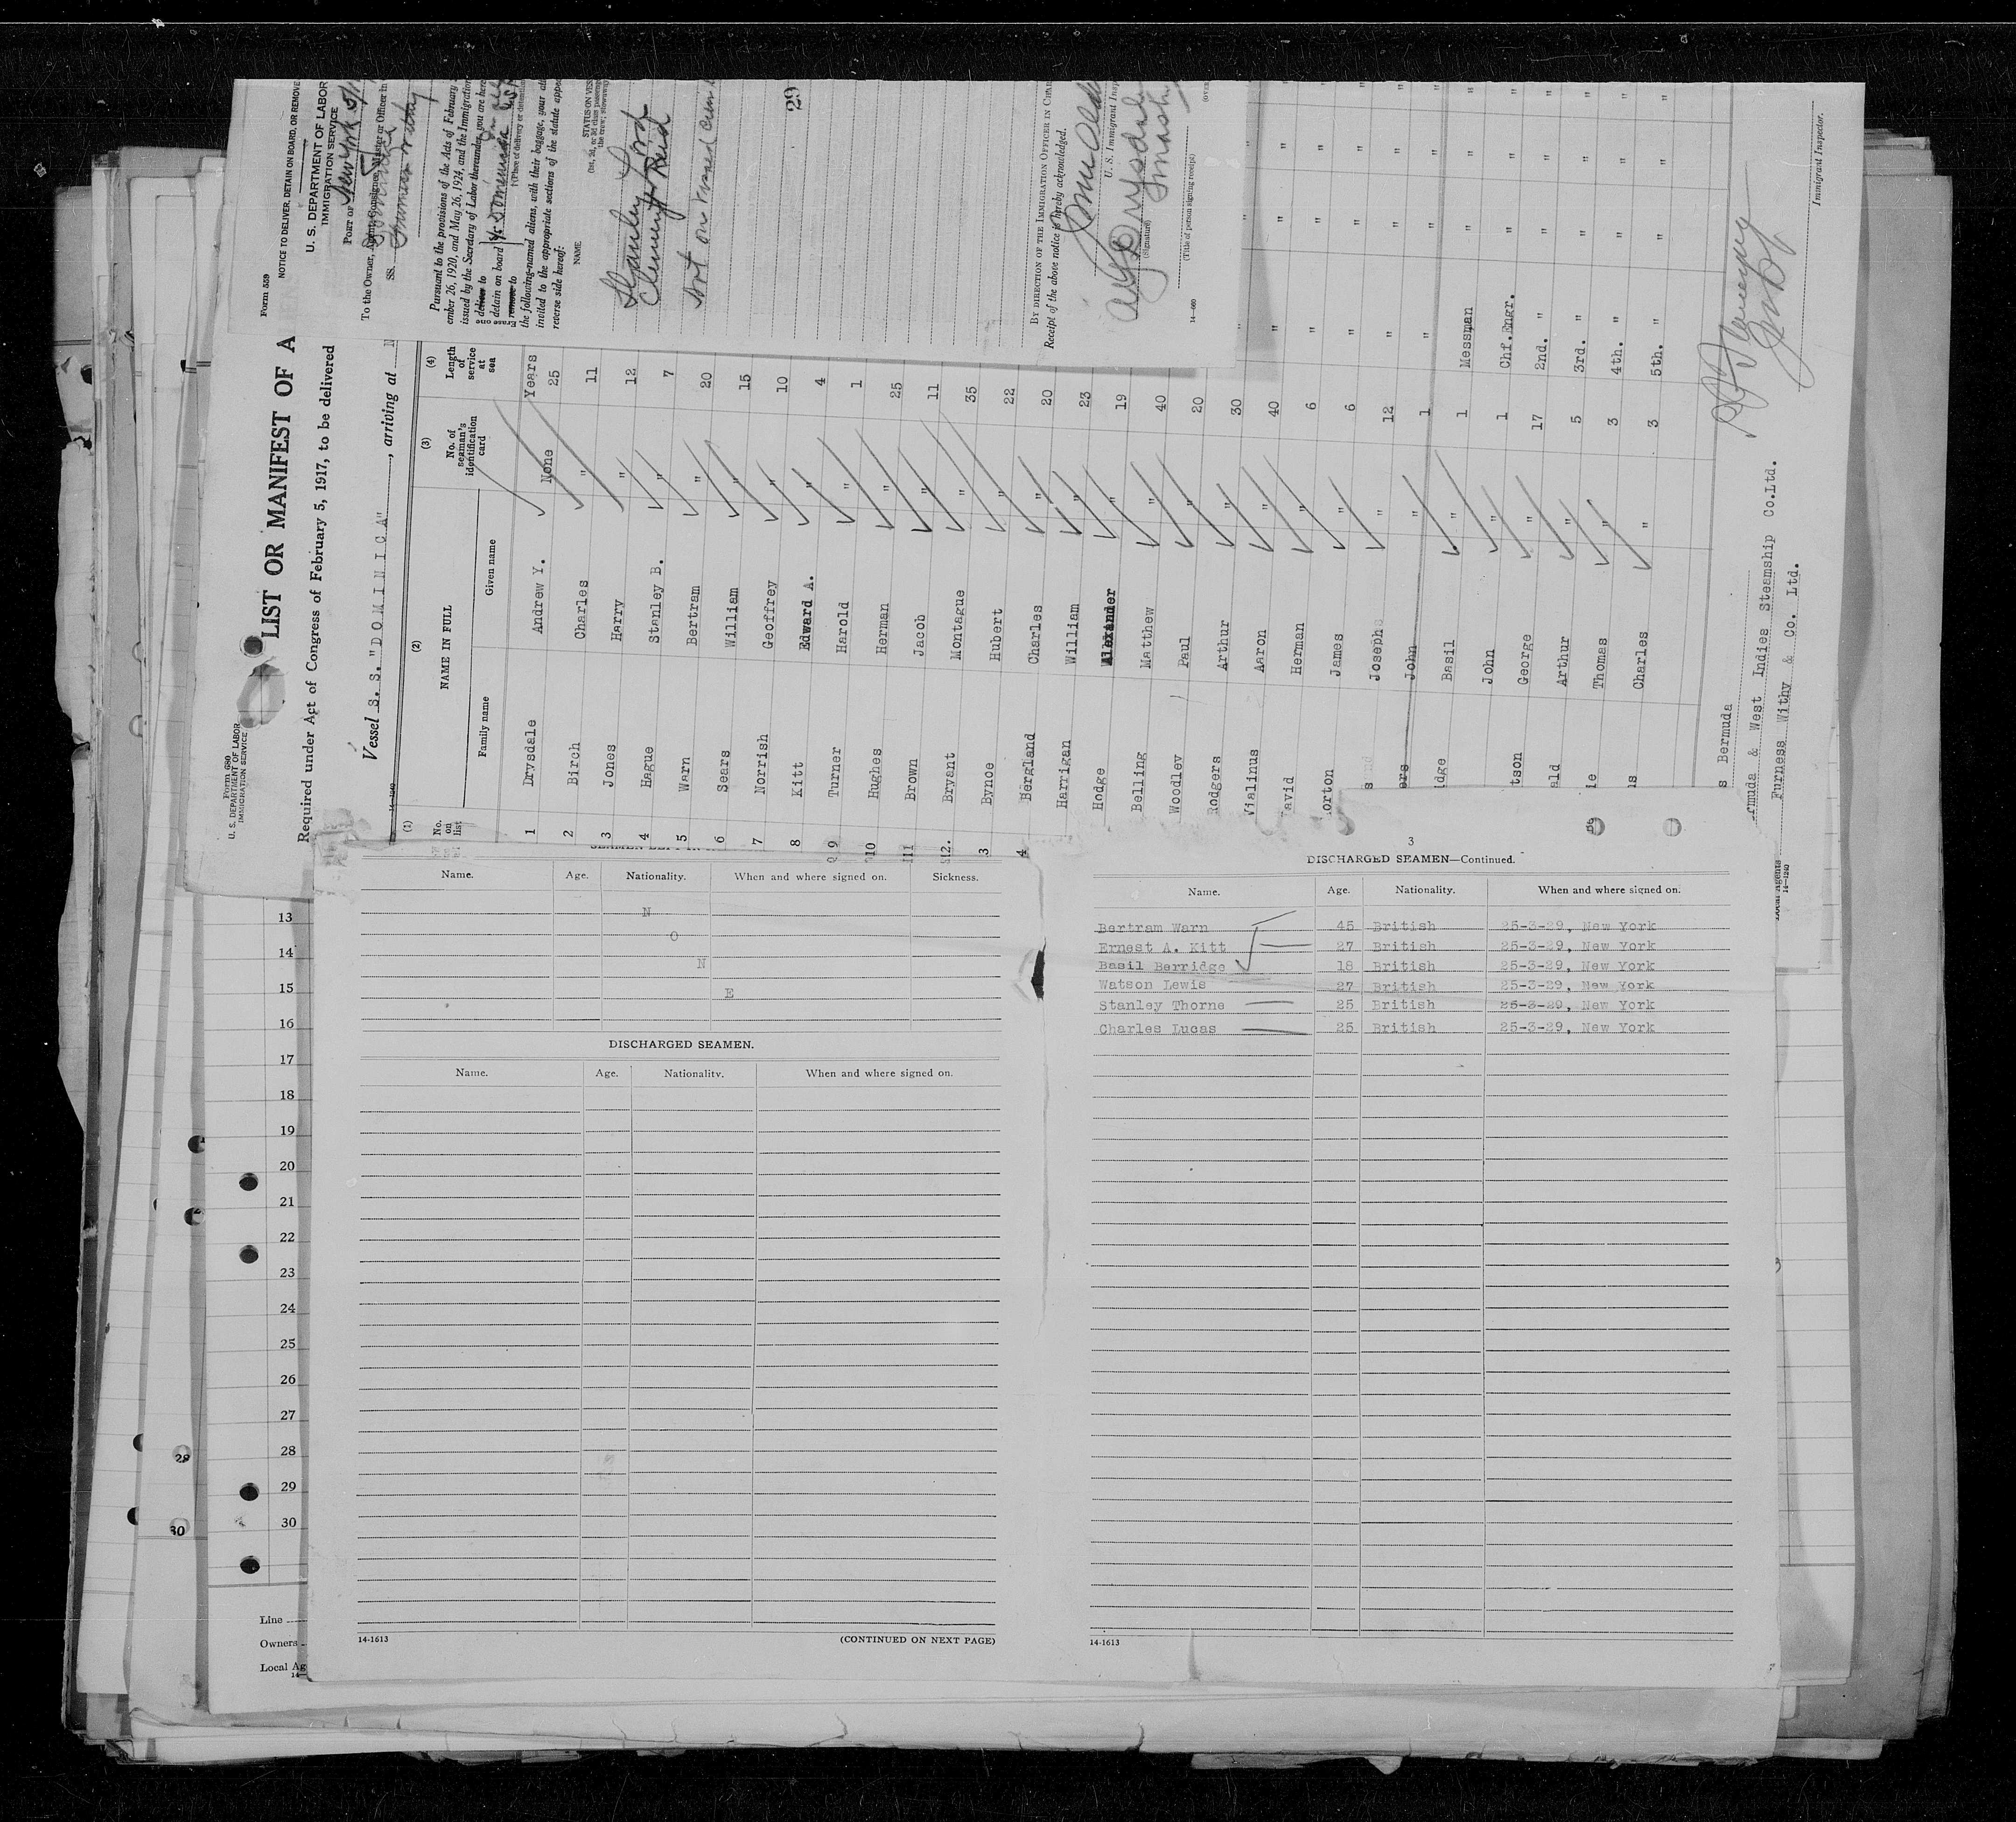 Form 539
NOTICE TO DELIVER, DETAIN ON BOARD, OR REMOVE
U. S. DEPARTMENT OF LABOR
IMMIGRATION SERVICE
PORT OF New York
To the Owner, Agent, Consignee, Master or Officer in
SS. Dominica
Furness Withy
Pursuant to the provisions of the Acts of February
ember 26, 1920, and May 26, 1924, and the Immigration
issued by the Secretary of Labor thereunder, you are here
deliver to
detain on board
remove to
Erase one
S/S Dominica
(Place of delivery or detention
the following-named aliens, with their baggage, your att
invited to the appropriate sections of the statute appe
reverse side hereof:
NAME
STATUS ON VES
(1st, 2d, or 3d class passenge
the crew; stowaway
Stanley Lord
Clement Reid
Not on visaed crew
29
BY DIRECTION OF THE IMMIGRATION OFFICER IN CHAR
Receipt of the above notice is hereby acknowledged.
U. S. Immigrant Insp
Drysdale
(Signature)
(Title of person signing receipt)
14—660
(OVER
Form 680
U. S. DEPARTMENT OF LABOR
IMMIGRATION SERVICE
LIST OR MANIFEST OF A
Required under Act of Congress of February 5, 1917, to be delivered
Vessel S. S. "D O M I N I C A" , arriving at N
14—1240
(1) (2) (3) (4)
No. on list NAME IN FULL No. of seaman's identification card Length of service at sea
Family name Given name
Years
1 Drysdale Andrew Y. None 25
2 Birch Charles " 11
3 Jones Harry " 12
4 Hague Stanley B. " 7
5 Warn Bertram " 20
6 Sears William " 15
7 Norrish Geoffrey " 10
8 Kitt Edward A. " 4
9 Turner Harold " 1
10 Hughes Herman " 25
11 Brown Jacob " 11
12. Bryant Montague " 35
3 Bynoe Hubert " 22
4 Bergland Charles " 20
Harrigan William " 23
Hodge Alexander " 19
Belling Matthew " 40
Woodley Paul " 20
Rodgers Arthur " 30
Vialinus Aaron " 40
David Herman " 6
orton James " 6
s Joseph " 12
ers John " 1
idge Basil " 1 Messman "
John " 1 Chf.Engr. "
tson George " 17 2nd. " "
ald Arthur " 5 3rd. " "
ie Thomas " 3 4th. " "
s Charles " 3 5th. " "
s Bermuda
rmuda & West Indies Steamship Co.Ltd.
Furness Withy & Co. Ltd.
Local Agents
14—1240
Immigrant Inspector.
Name. Age. Nationality. When and where signed on. Sickness.
N
O
N
E
DISCHARGED SEAMEN.
Name. Age. Nationality. When and where signed on.
14-1613
(CONTINUED ON NEXT PAGE)
3
DISCHARGED SEAMEN—Continued.
Name. Age. Nationality. When and where signed on.
Bertram Warn 45 British 25-3-29, New York
Ernest A. Kitt 27 British 25-3-29, New York
Basil Berridge 18 British 25-3-29, New York
Watson Lewis 27 British 25-3-29, New York
Stanley Thorne 25 British 25-3-29, New York
Charles Lucas 25 British 25-3-29, New York
14-1613
13
14
15
16
17
18
19
20
21
22
23
24
25
26
27
28
29
30
29
30
Line
Owners
Local Ag
14